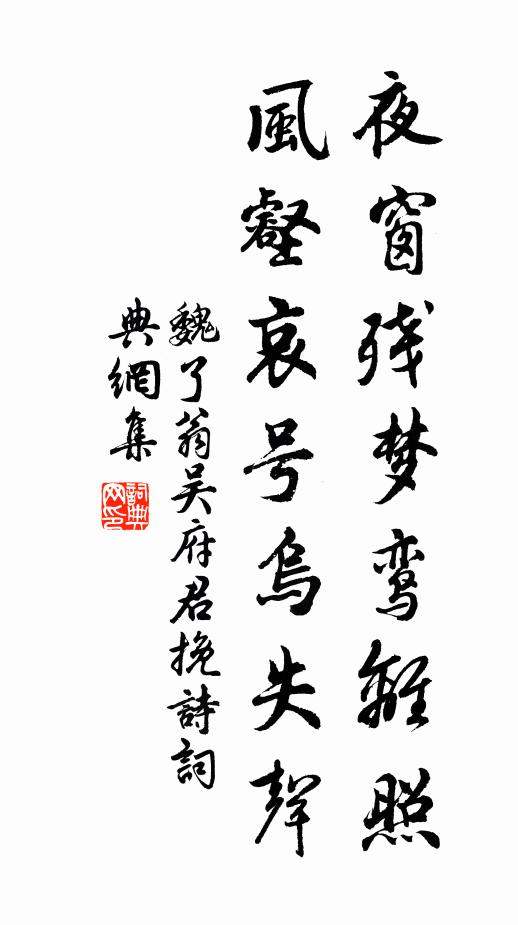 夜窗残梦鸾離照
風壑哀号烏失聲
魏了翁吴府君挽詩詞
典網集
詞典网印